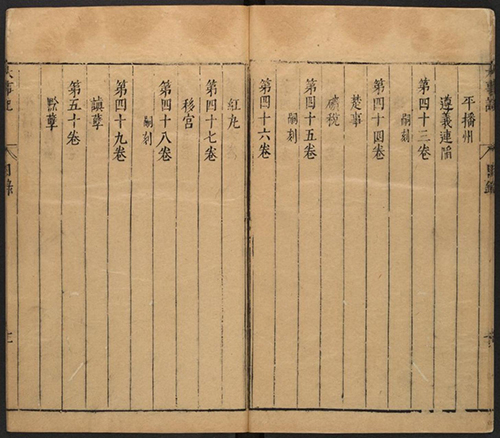 平播州
遵義連陷
第四十三卷
嗣刻
第四十四卷
楚事
礦稅
第四十五卷
嗣刻
第四十六卷
紅丸
第四十七卷
移宮
第四十八卷
嗣刻
第四十九卷
滇孽
第五十卷
黔孽
目錄